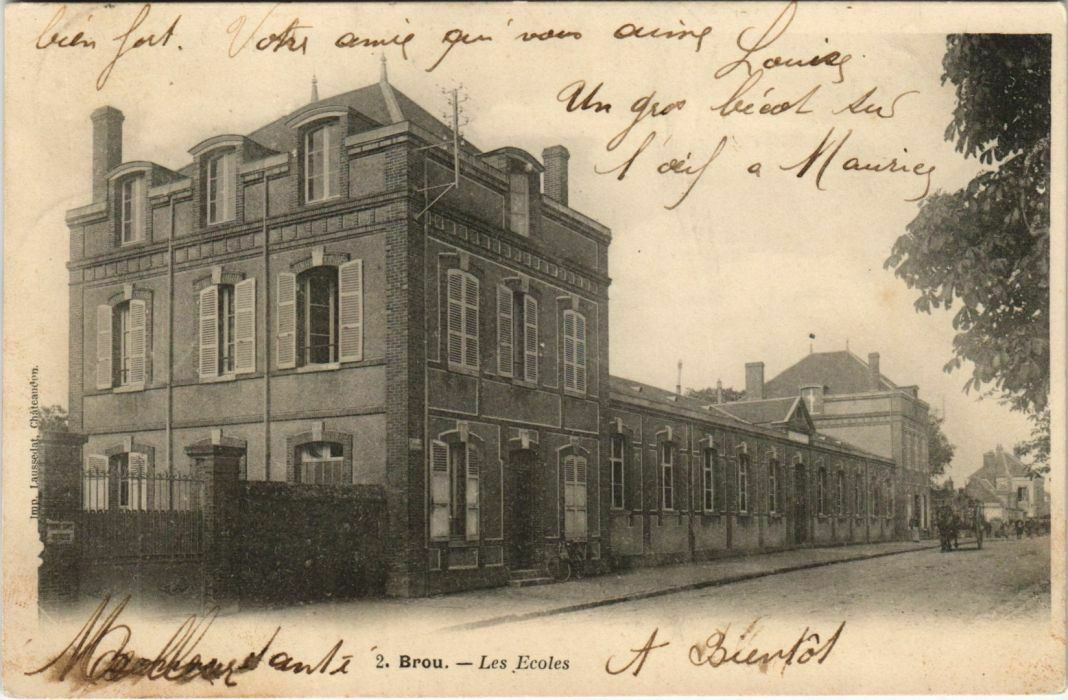 bien fort. Votre amie qui vous aime Louise
Un gros bécot sur
l'œil a Maurice
Imp. Laussedat, Châteaudun.
santé
2. Brou. — Les Ecoles
A Bientôt